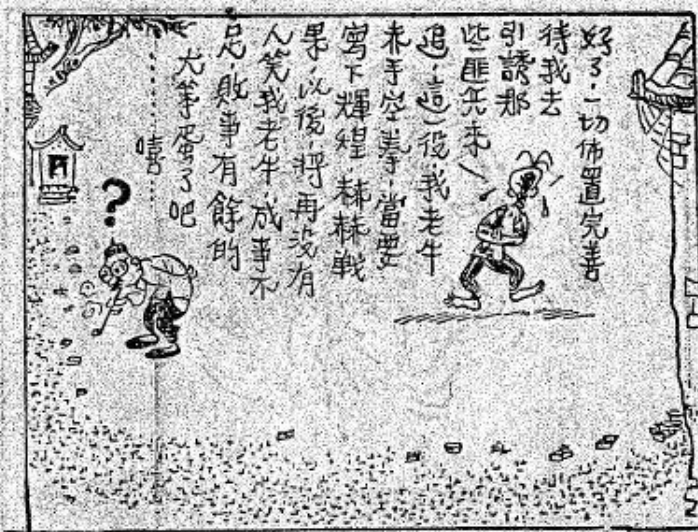 好了,一切佈置完善
待我去
引誘那
些匪兵来
追,這一役,我老牛
赤手空拳,當要
寫下輝煌.赫赫戰
果,以後,將再没有
人笑我老牛,成事不
足,敗事有餘的
大笨蛋了吧
嘻……
?